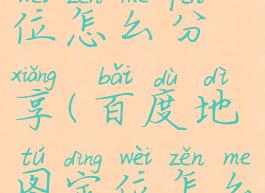 位怎么分
xiǎng bǎi dù dì
享(百度地
tú dìng wèi zěn me
图定位怎么